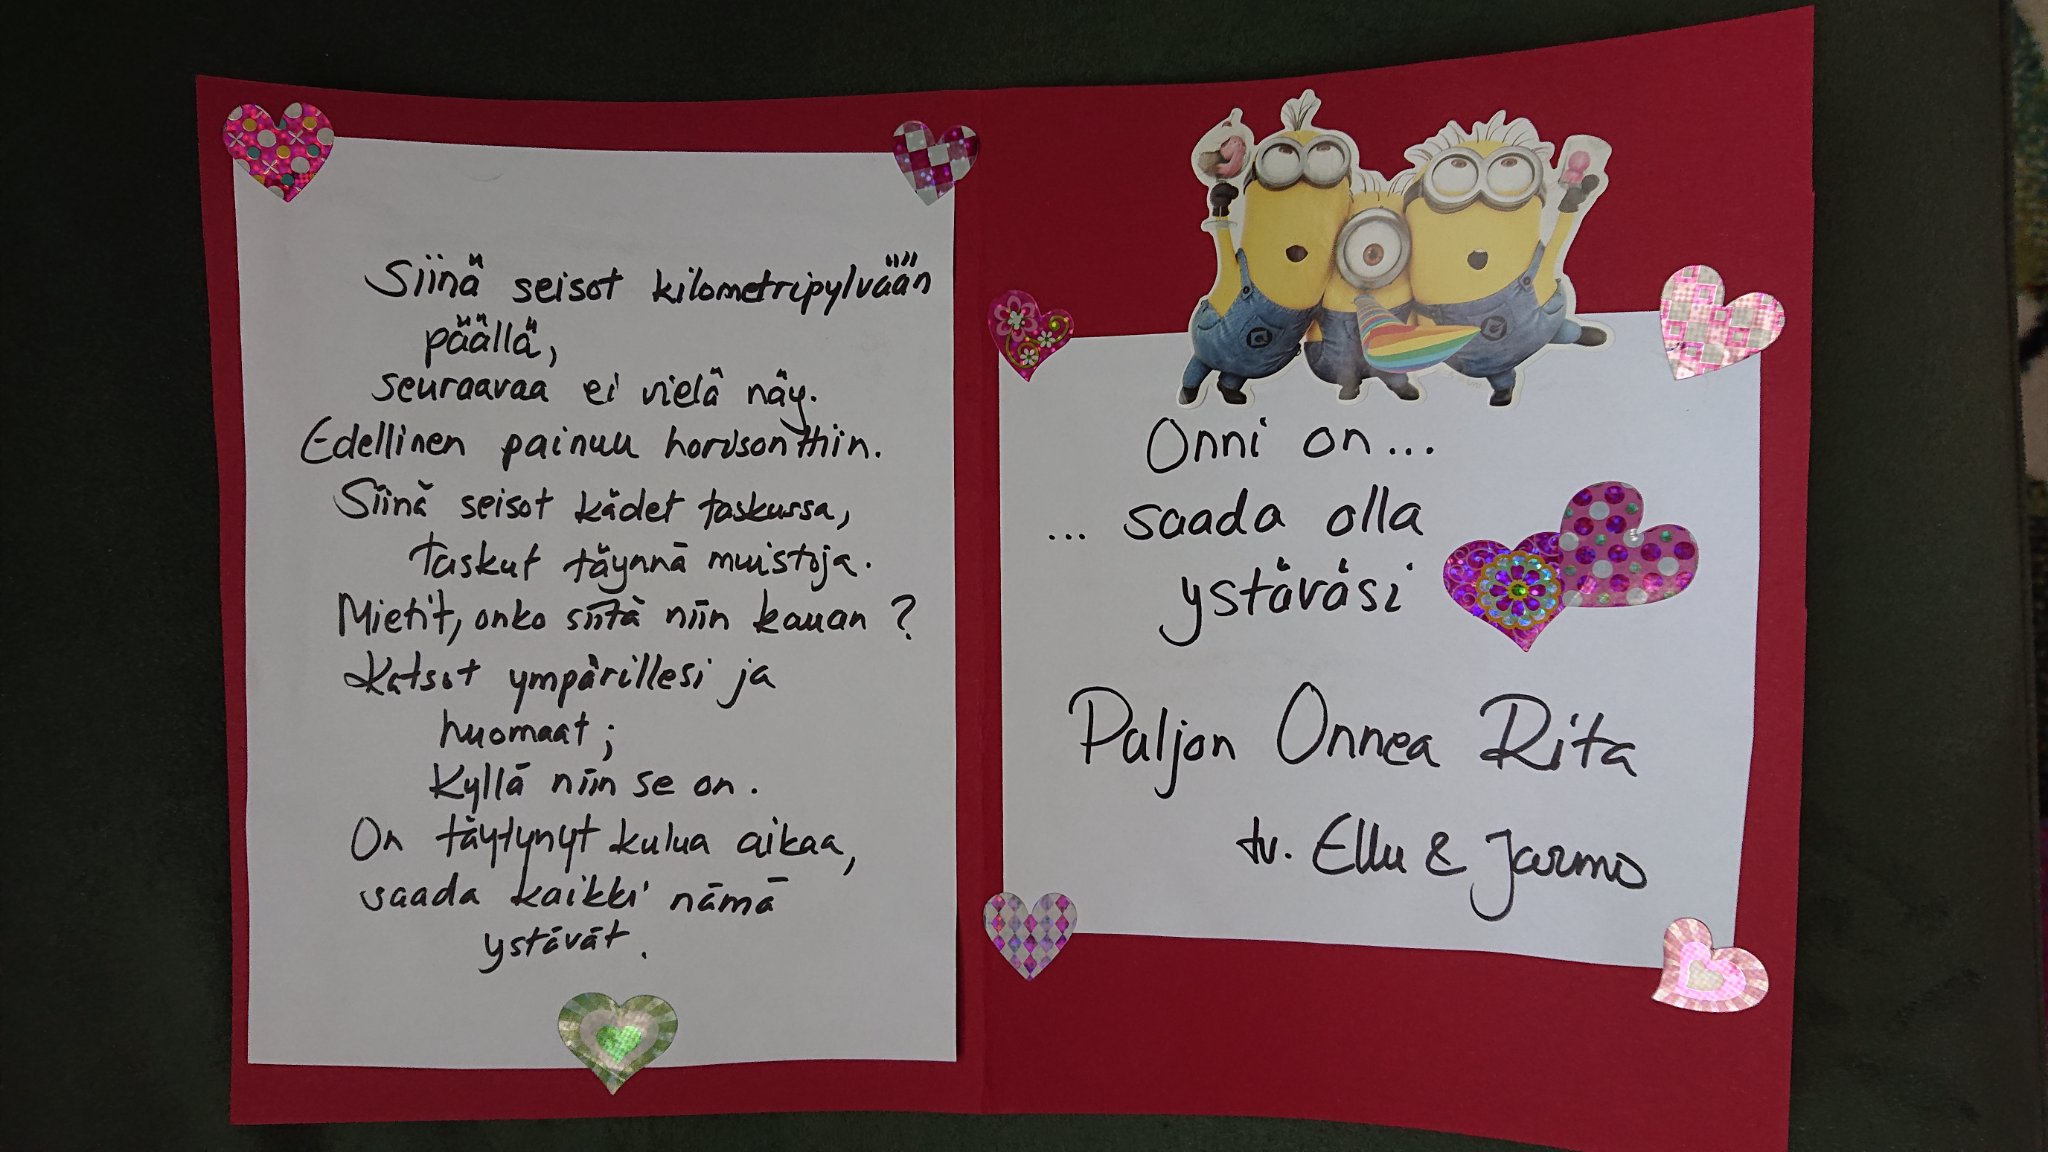 Siinä seisot kilometripylvään
päällä,
seuraavaa ei vielä näy.
Edellinen painuu horisonttiin.
Siinä seisot kädet taskussa,
taskut täynnä muistoja.
Mietit, onko siitä niin kauan?
Katsot ympärillesi ja
huomaat;
Kyllä niin se on.
On täytynyt kulua aikaa,
saada kaikki nämä
ystävät.
Onni on...
... saada olla
ystäväsi
Paljon Onnea Rita
tv. Ellu & Jarmo